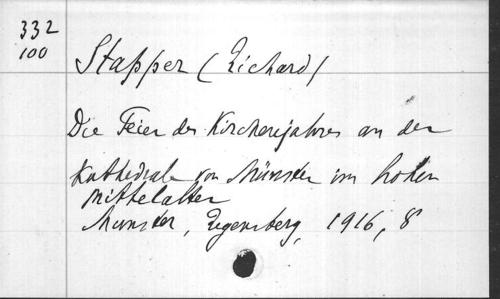 332
100
Stapper (Richard)
Die Feier des Kirchenjahres an der
Kathedrale von Münster im hohen
Mittelalter
Munster, Regensberg, 1916, 8°